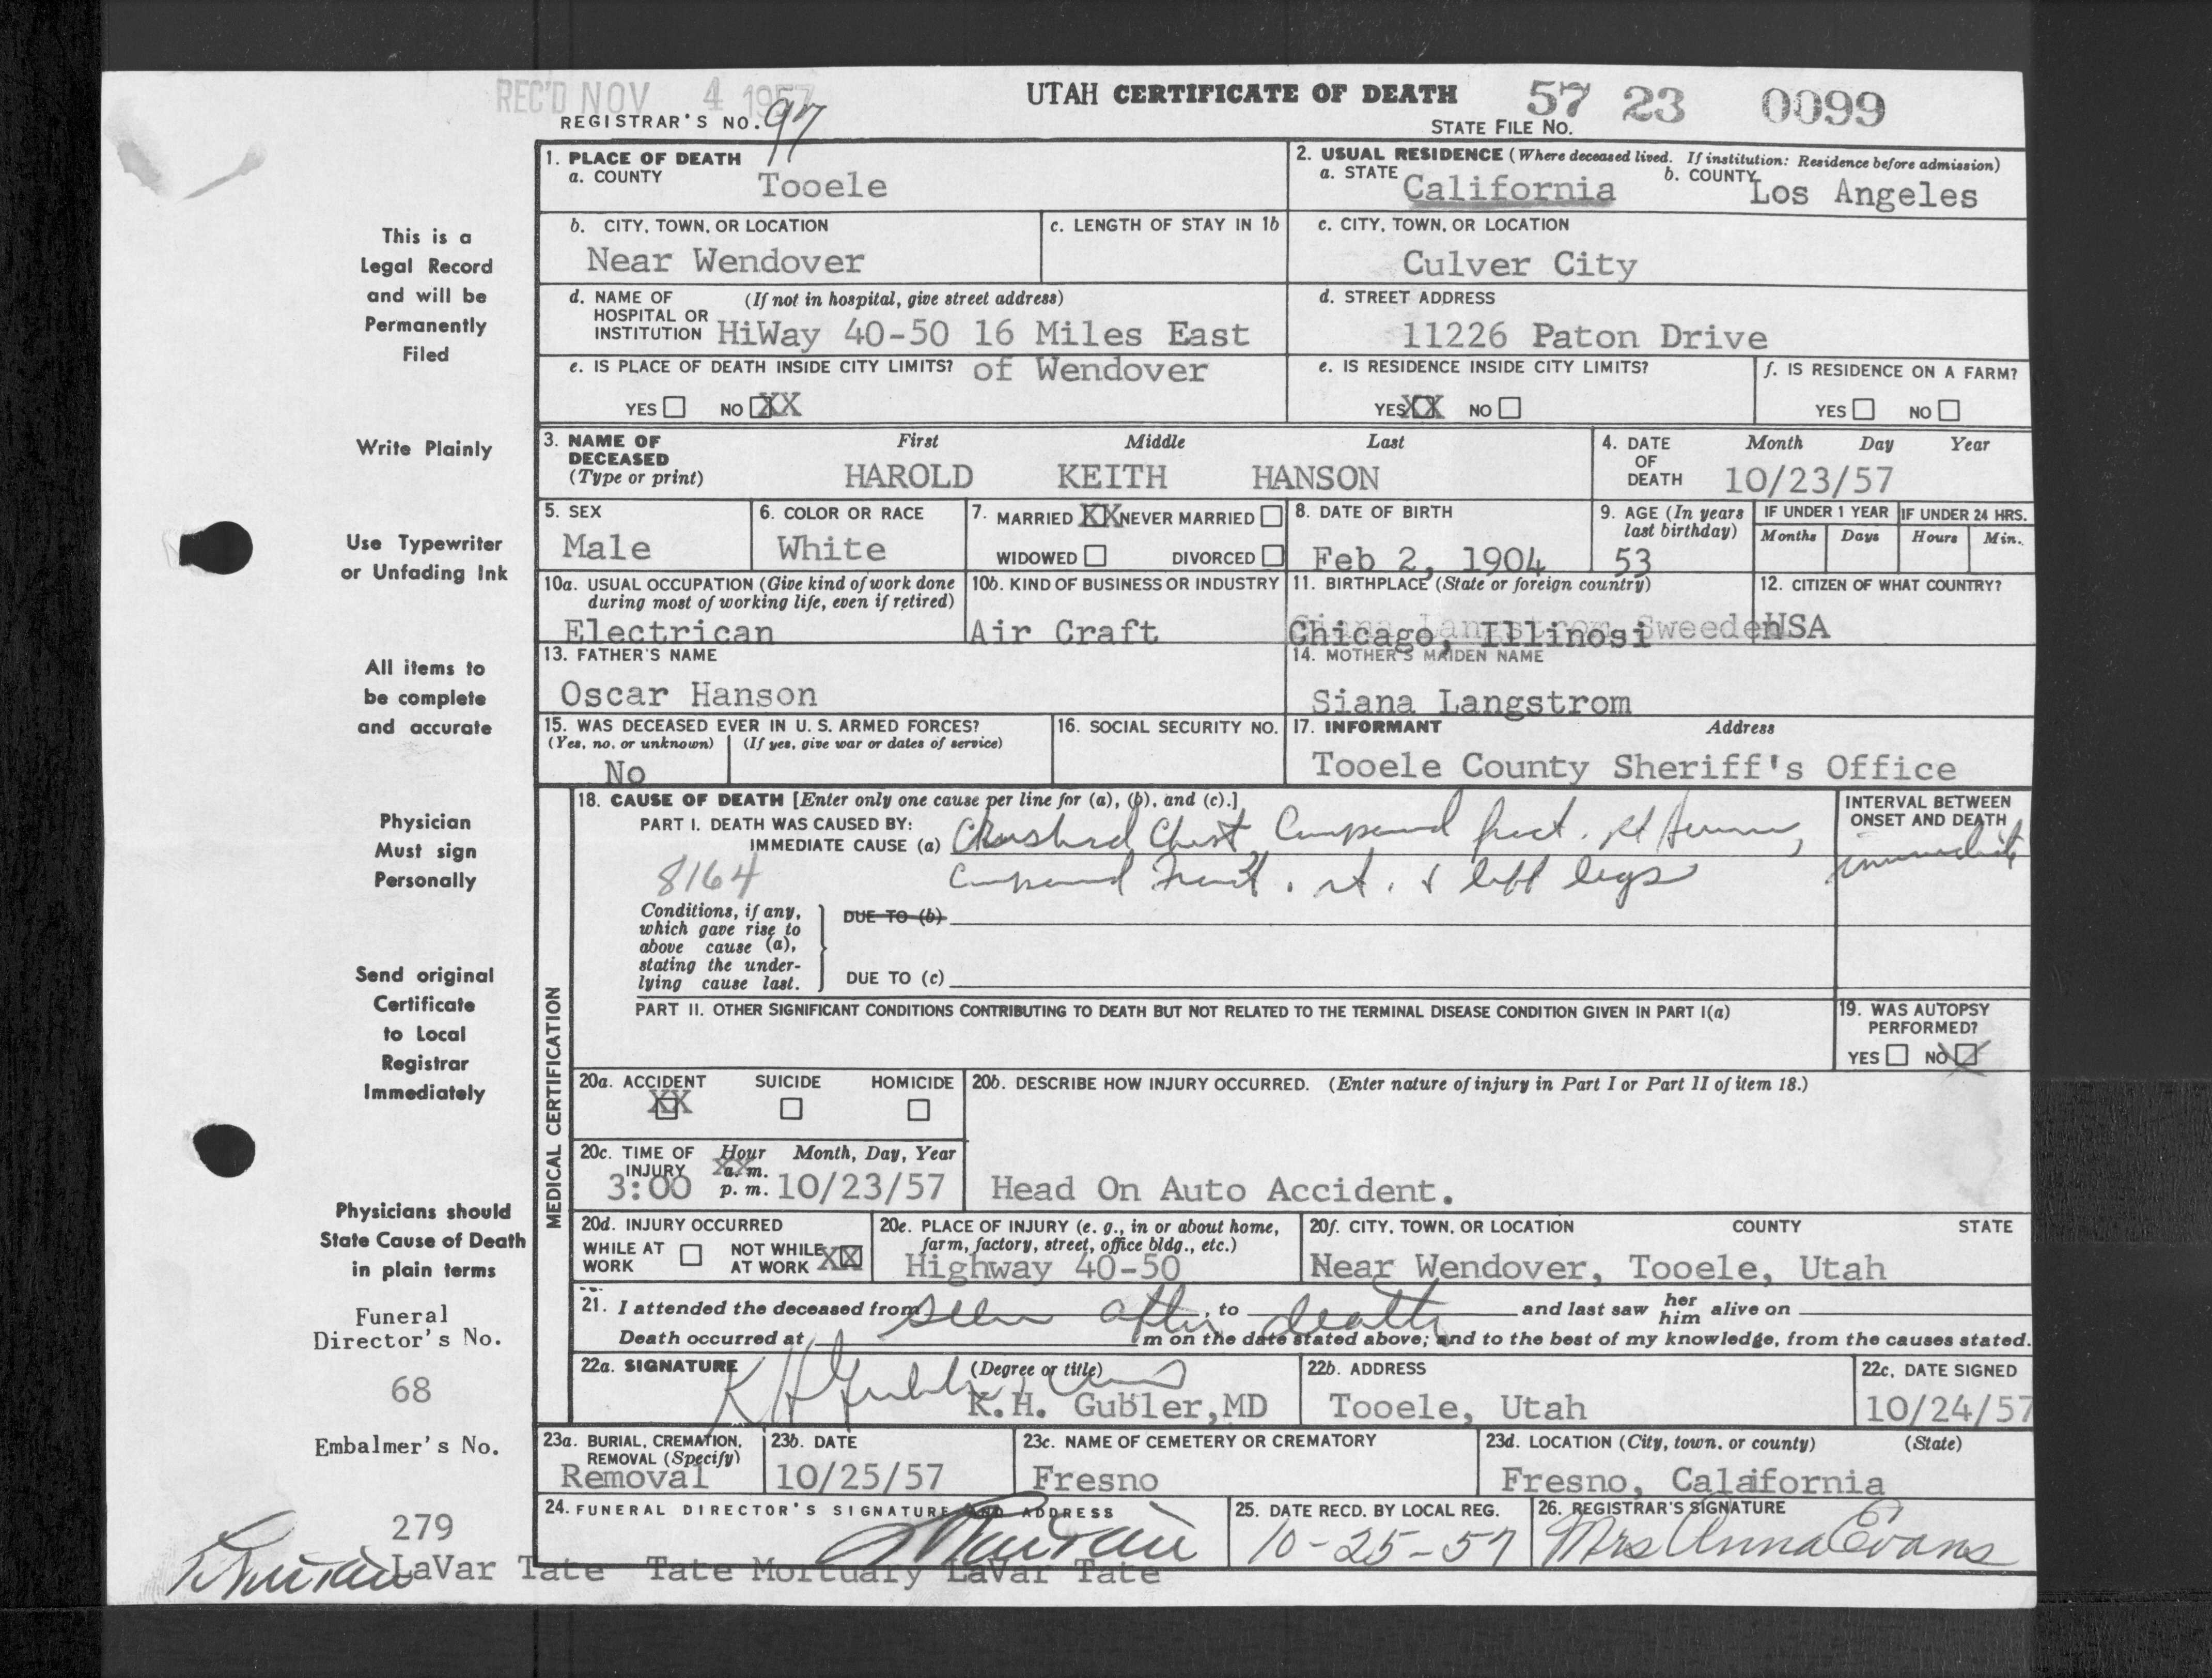 REC'D NOV 4 1957
UTAH CERTIFICATE OF DEATH 57 23 0099
REGISTRAR'S NO. 97
STATE FILE NO.
This is a
Legal Record
and will be
Permanently
Filed
Write Plainly
Use Typewriter
or Unfading Ink
All items to
be complete
and accurate
Physician
Must sign
Personally
Send original
Certificate
to Local
Registrar
Immediately
Physicians should
State Cause of Death
in plain terms
Funeral
Director's No.
68
Embalmer's No.
279
1. PLACE OF DEATH
a. COUNTY Tooele
2. USUAL RESIDENCE (Where deceased lived. If institution: Residence before admission)
a. STATE California b. COUNTY Los Angeles
b. CITY, TOWN, OR LOCATION
Near Wendover
c. LENGTH OF STAY IN 1b
c. CITY, TOWN, OR LOCATION
Culver City
d. NAME OF (If not in hospital, give street address)
HOSPITAL OR
INSTITUTION HiWay 40-50 16 Miles East
d. STREET ADDRESS
11226 Paton Drive
e. IS PLACE OF DEATH INSIDE CITY LIMITS? of Wendover
YES NO XX
e. IS RESIDENCE INSIDE CITY LIMITS?
YES XX NO
f. IS RESIDENCE ON A FARM?
YES NO
3. NAME OF DECEASED (Type or print)
First Middle Last
HAROLD KEITH HANSON
4. DATE OF DEATH Month Day Year
10/23/57
5. SEX
Male
6. COLOR OR RACE
White
7. MARRIED XX NEVER MARRIED
WIDOWED DIVORCED
8. DATE OF BIRTH
Feb 2, 1904
9. AGE (In years last birthday)
53
IF UNDER 1 YEAR
Months Days
IF UNDER 24 HRS.
Hours Min.
10a. USUAL OCCUPATION (Give kind of work done
during most of working life, even if retired)
Electrican
10b. KIND OF BUSINESS OR INDUSTRY
Air Craft
11. BIRTHPLACE (State or foreign country)
Chicago, Illinosi
12. CITIZEN OF WHAT COUNTRY?
USA
13. FATHER'S NAME
Oscar Hanson
14. MOTHER'S MAIDEN NAME
Siana Langstrom
15. WAS DECEASED EVER IN U. S. ARMED FORCES?
(Yes, no, or unknown) (If yes, give war or dates of service)
No
16. SOCIAL SECURITY NO.
17. INFORMANT Address
Tooele County Sheriff's Office
MEDICAL CERTIFICATION
18. CAUSE OF DEATH [Enter only one cause per line for (a), (b), and (c).]
PART I. DEATH WAS CAUSED BY:
IMMEDIATE CAUSE (a) Crushed Chest, Compound fract. Rt
8164 Compound Fract. rt. & left legs
INTERVAL BETWEEN
ONSET AND DEATH
immediate
Conditions, if any,
which gave rise to
above cause (a),
stating the under-
lying cause last.
DUE TO (b)
DUE TO (c)
PART II. OTHER SIGNIFICANT CONDITIONS CONTRIBUTING TO DEATH BUT NOT RELATED TO THE TERMINAL DISEASE CONDITION GIVEN IN PART I(a)
19. WAS AUTOPSY
PERFORMED?
YES NO X
20a. ACCIDENT SUICIDE HOMICIDE
XX
20b. DESCRIBE HOW INJURY OCCURRED. (Enter nature of injury in Part I or Part II of item 18.)
Head On Auto Accident.
20c. TIME OF INJURY Hour Month, Day, Year
a. m.
3:00 p. m. 10/23/57
20d. INJURY OCCURRED
WHILE AT WORK NOT WHILE AT WORK XX
20e. PLACE OF INJURY (e. g., in or about home,
farm, factory, street, office bldg., etc.)
Highway 40-50
20f. CITY, TOWN, OR LOCATION COUNTY STATE
Near Wendover, Tooele, Utah
21. I attended the deceased from seen after, to death and last saw her him alive on
Death occurred at m on the date stated above; and to the best of my knowledge, from the causes stated.
22a. SIGNATURE (Degree or title)
K H Gubler
K.H. Gubler,MD
22b. ADDRESS
Tooele, Utah
22c. DATE SIGNED
10/24/57
23a. BURIAL, CREMATION,
REMOVAL (Specify)
Removal
23b. DATE
10/25/57
23c. NAME OF CEMETERY OR CREMATORY
Fresno
23d. LOCATION (City, town, or county) (State)
Fresno, Calaifornia
24. FUNERAL DIRECTOR'S SIGNATURE AND ADDRESS
25. DATE RECD. BY LOCAL REG.
10-25-57
26. REGISTRAR'S SIGNATURE
Mrs Anna Evans
LaVar Tate Tate Mortuary LaVar Tate